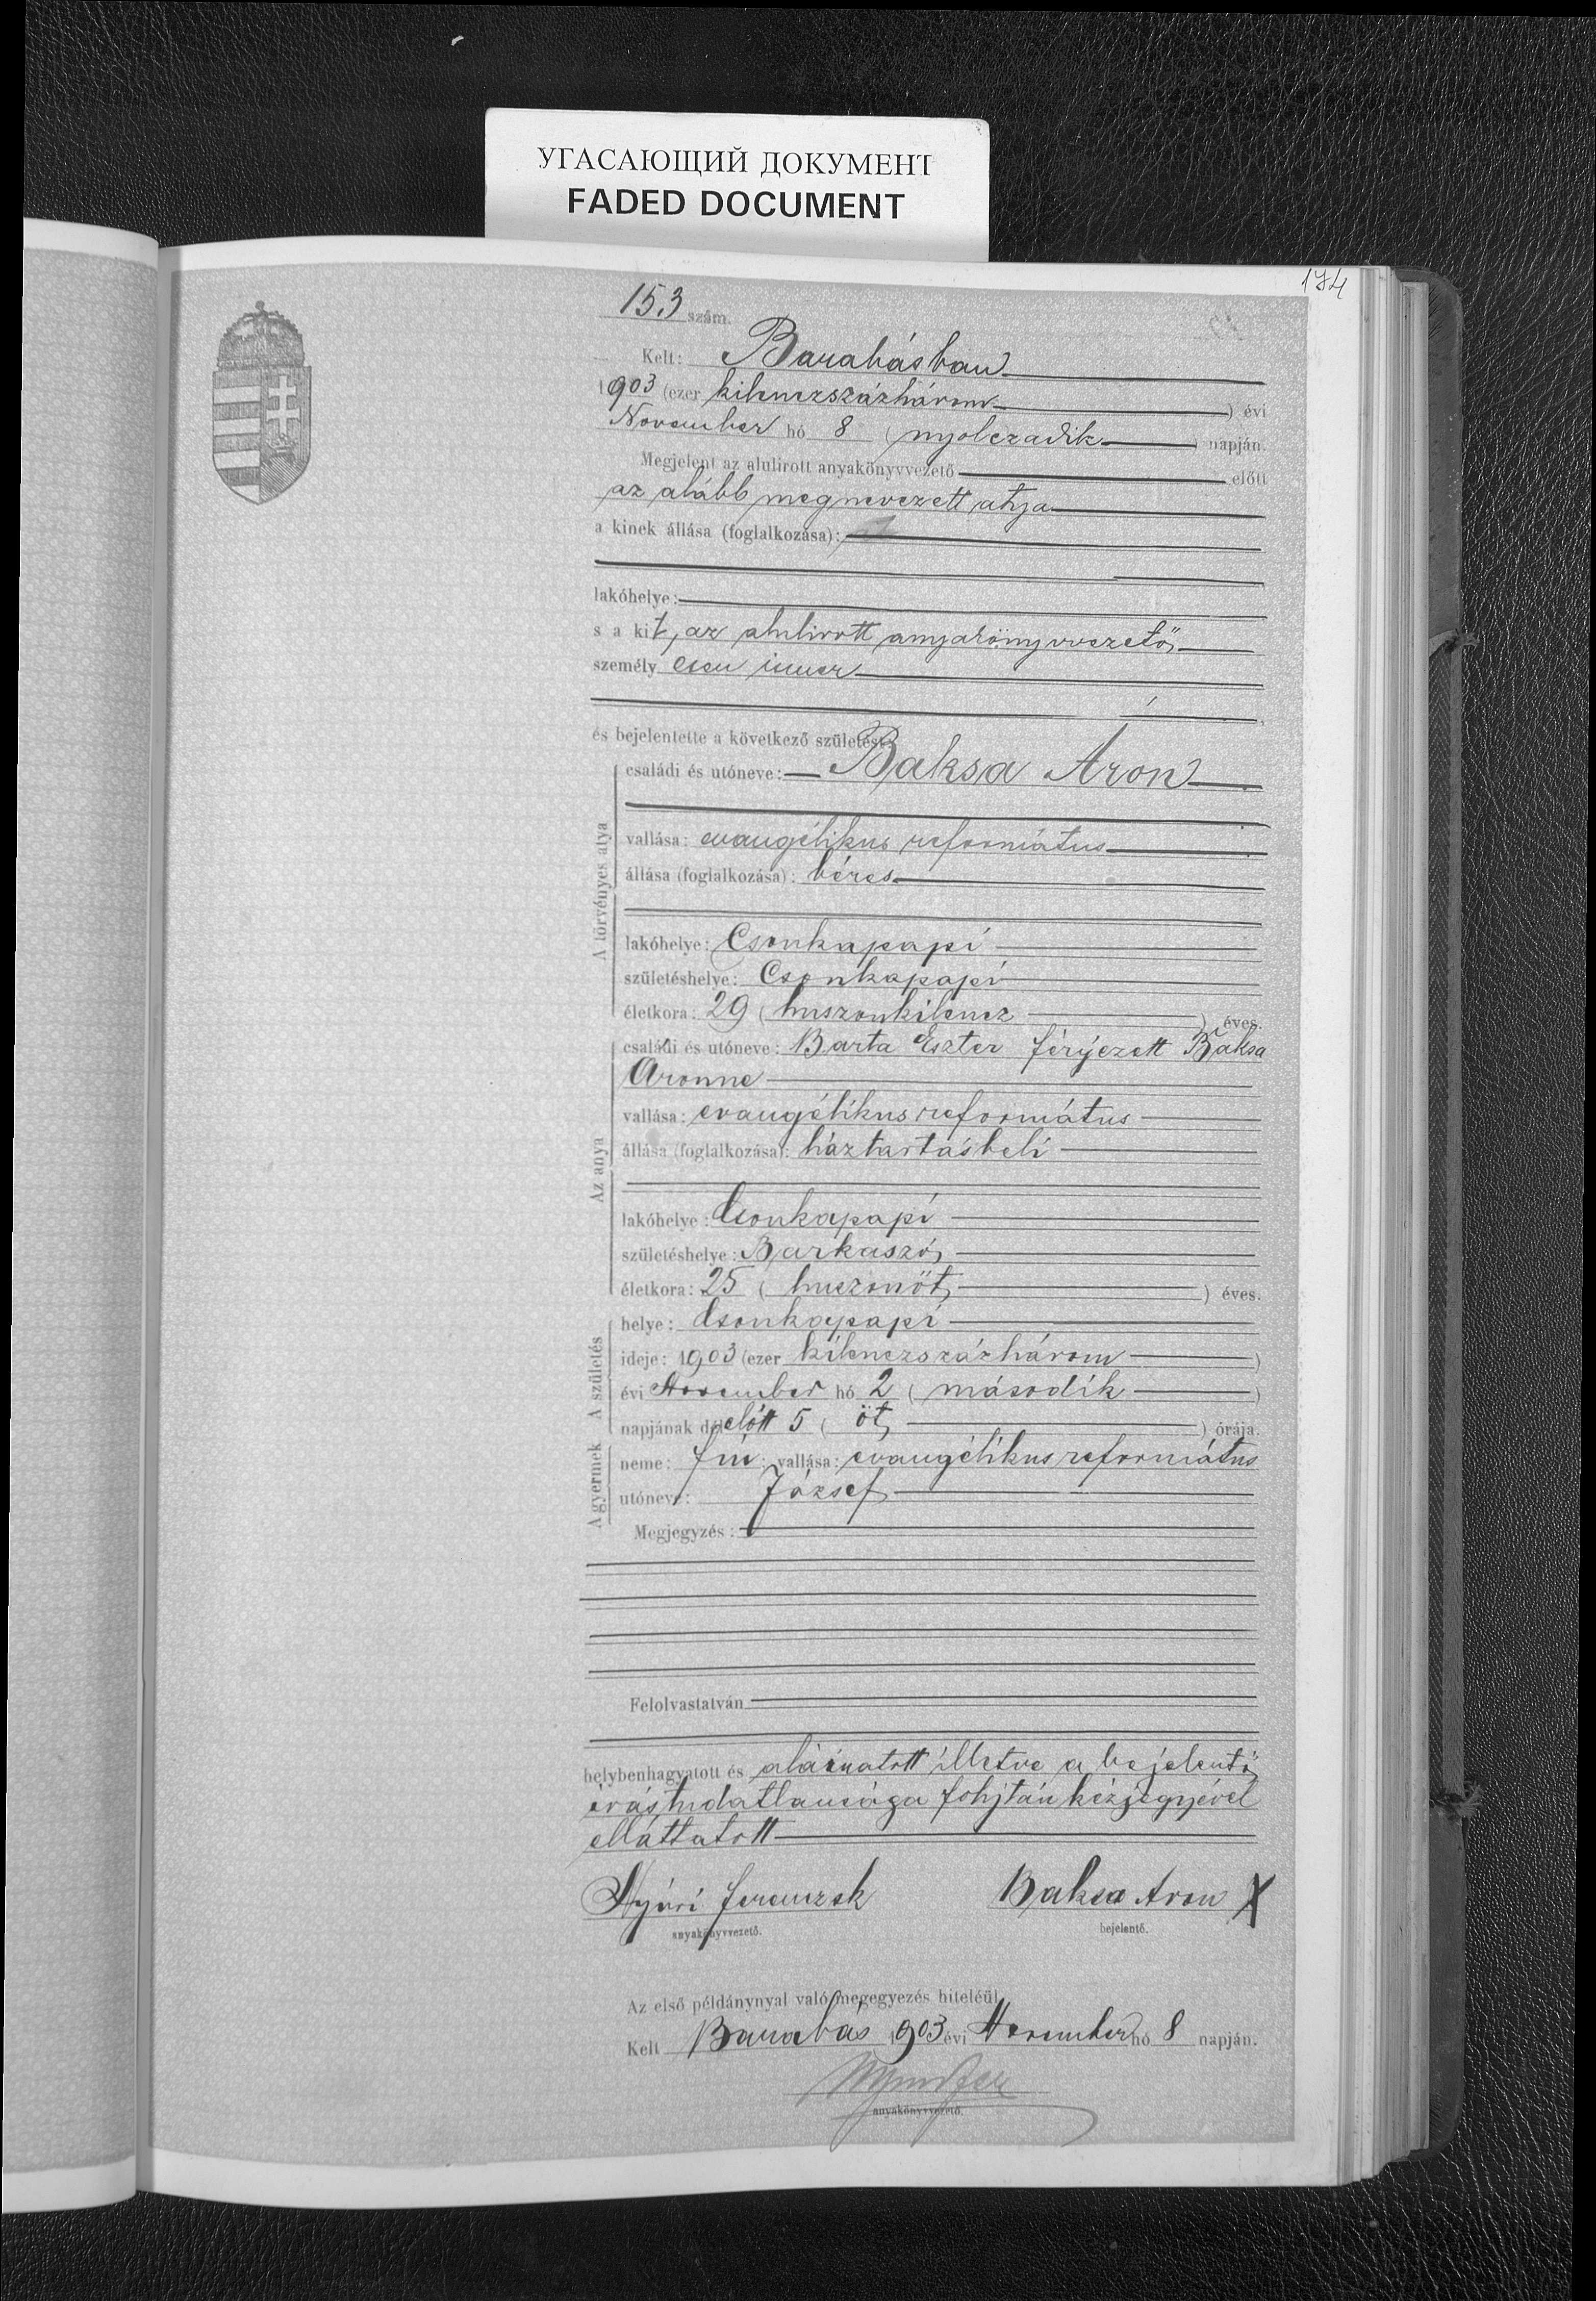 УГАСАЮЩИЙ ДОКУМЕНТ
FADED DOCUMENT
174
153 szám.
Kelt: Barabásban
1903 (ezer kilenczszázhárom) évi
November hó 8 (nyolczadik) napján.
Megjelent az alulirott anyakönyvvezető előtt
az alább megnevezett atyja
a kinek állása (foglalkozása):
lakóhelye:
s a kit, az alulirott anyakönyvvezető,
személyesen ismer
és bejelentette a következő születést:
A törvényes atya
családi és utóneve: Baksa Aron
vallása: evangélikus református
állása (foglalkozása): béres
lakóhelye: Csonkapapi
születéshelye: Csonkapapi
életkora: 29 (huszonkilencz) éves.
Az anya
családi és utóneve: Barta Eszter férjezett Baksa
Aronne
vallása: evangélikus református
állása (foglalkozása): háztartásbeli
lakóhelye: Csonkapapi
születéshelye: Barkaszó,
életkora: 25 (huszonöt,) éves.
A születés
helye: Csonkapapi
ideje: 1903 (ezer kilenczszázhárom)
évi November hó 2 (második)
napjának délelőtt 5 (öt,) órája.
A gyermek
neme: fiú; vallása: evangélikus református
utóneve: József,
Megjegyzés:
Felolvastatván
helybenhagyatott és aláiratott illetve a bejelentő,
irástudatlansága folytán kézjegyével
elláttatott
Nyiri Ferenczek Baksa Aron X
anyakönyvvezető. bejelentő.
Az első példánynyal való megegyezés hiteléül
Kelt Barabás 1903 évi November hó 8 napján.
anyakönyvvezető.